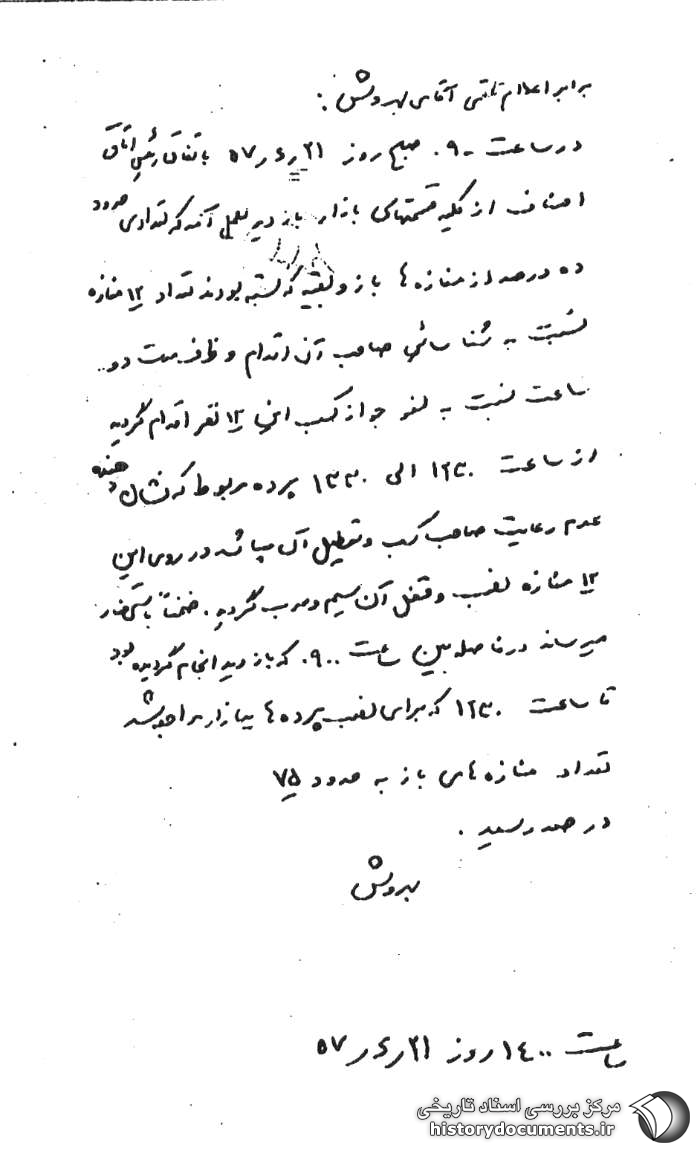 برابر اعلام تلفنی آقای بهروش :
در ساعت ۰۹۰۰ صبح روز ۲۱ر۶ر۵۷ باتفاق رئیس اتاق
اصناف از کلیه قسمتهای بازار بازدید بعمل آمد که تعدادی حدود
ده درصد از مغازه ها باز و بقیه که بسته بودند تعداد ۱۲ مغازه
نسبت به شناسائی صاحب آن اقدام و ظرف مدت دو
ساعت نسبت به لغو جواز کسب این ۱۲ نفر اقدام گردید
از ساعت ۱۲۳۰ الی ۱۳۳۰ پرده مربوط که نشان دهنده
عدم رعایت صاحب کسب و تعطیل آن میباشد در روی این
۱۲ مغازه نصب و قفل آن سیم و سرب گردید . ضمناً باستحضار
میرساند در فاصله بین ساعت ۰۹۰۰ که بازدید انجام گردیده بود
تا ساعت ۱۲۳۰ که برای نصب پرده ها ببازار مراجعه شد
تعداد مغازه های باز به حدود ۷۵
درصد رسید .
بهروش
ساعت ۱۴۰۰ روز ۲۱ر۶ر۵۷
مرکز بررسی اسناد تاریخی
historydocuments.ir